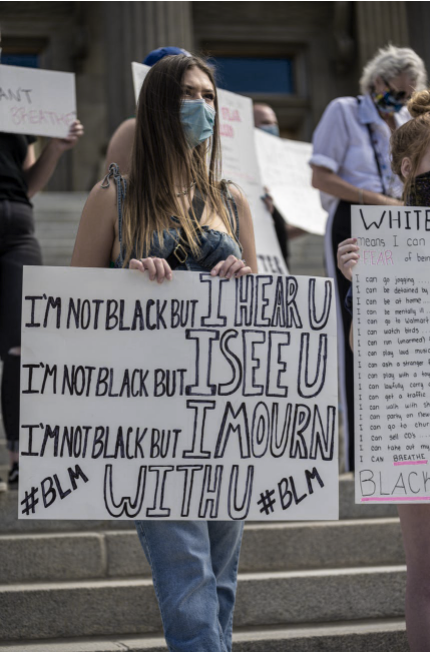 ANT
BREATHE
FEAR
TER
I'M NOT BLACK BUT I HEAR U
I'M NOT BLACK BUT I SEE U
I'M NOT BLACK BUT I MOURN
WITH U
#BLM
#BLM
WHITE
means I can
FEAR of bein
I can go jogging
I can be detained by
I can be at home
I can be mentally il
I can go to Walmart
I can watch birds
I can run (unarmed)
I can play loud music
I can ask a stranger f
I can play with a toy
I can lawfully carry a
I can get a traffic
I can walk with sk
I can party on new
I can go to chur
I can sell CD's
I can take out my
I CAN BREATHE
BLACK